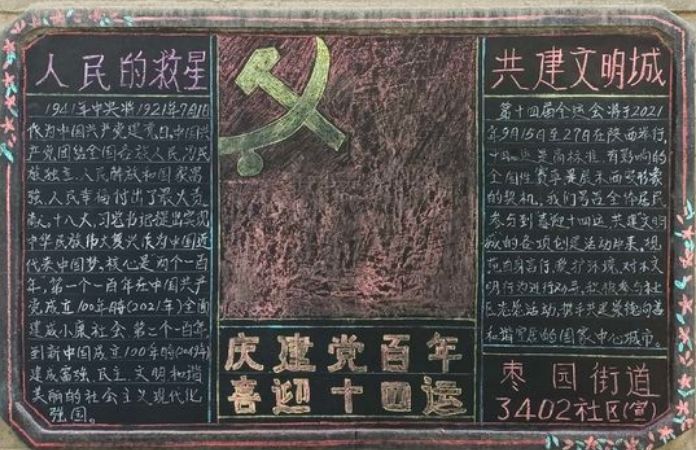 人民的救星
1941年中共将1921年7月1日
作为中国共产党建党日,中国共
产党团结全国各族人民,为民
族独立、人民解放和国家富
强、人民幸福付出了最大贡
献。十八大,习总书记提出实现
中华民族伟大复兴作为中国近
代来中国梦。核心是两个一百
年,第一个一百年在中国共产
党成立100年时(2021年)全面
建成小康社会.第二个一百年,
到新中国成立100年时(2049年)
建成富强、民主、文明和谐
美丽的社会主义现代化
强国。
庆建党百年
喜迎十四运
共建文明城
第十四届全运会将于2021
年9月15日至27日在陕西举行,
十四运是高标准、有影响的
全国性赛事是展示西安形象
的契机,我们号召全体居民
参与到喜迎十四运、共建文明
城的各项创建活动中来,规
范自身言行,爱护环境,对不文
明行为进行劝导,积极参与社
区志愿活动,携手共建崇德向善
和谐宜居的国家中心城市。
枣园街道
3402社区(宣)